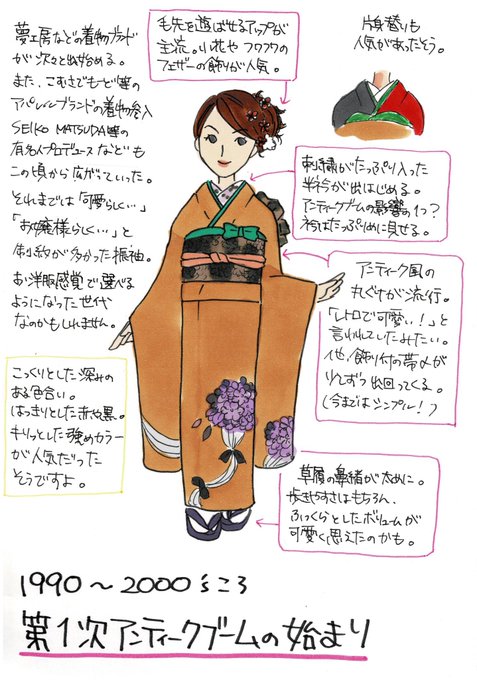 夢工房などの着物ブランド
が次々と出始める。
また、こむさでもど等の
アパレルブランドの着物参入
SEIKO MATSUDA等の
有名人プロデュースなども
この頃から広がっていった。
それまでは「可愛らしく…」
「お嬢様らしく…」と
制約が多かった振袖。
お洋服感覚で選べる
ようになった世代
なのかもしれません。
毛先を遊ばせるアップが
主流。小花やフワフワの
フェザーの飾りが人気。
片身替りも
人気があったそう。
刺繍がたっぷり入った
半衿が出はじめる。
アンティークブームの影響の1つ?
衿はたっぷりめに見せる。
アンティーク風の
丸ぐけが流行。
「レトロで可愛い!」と
言われていたみたい。
他、飾り付の帯〆が
少しずつ出回ってくる。
(今まではシンプル!)
こっくりとした深みの
ある色合い。
はっきりとした赤や黒。
キリッとした強めカラー
が人気だった
そうですよ。
草履の鼻緒が太めに。
歩きやすさはもちろん、
ふっくらとしたボリュームが
可愛く思えたのかも。
1990〜2000'sころ
第1次アンティークブームの始まり